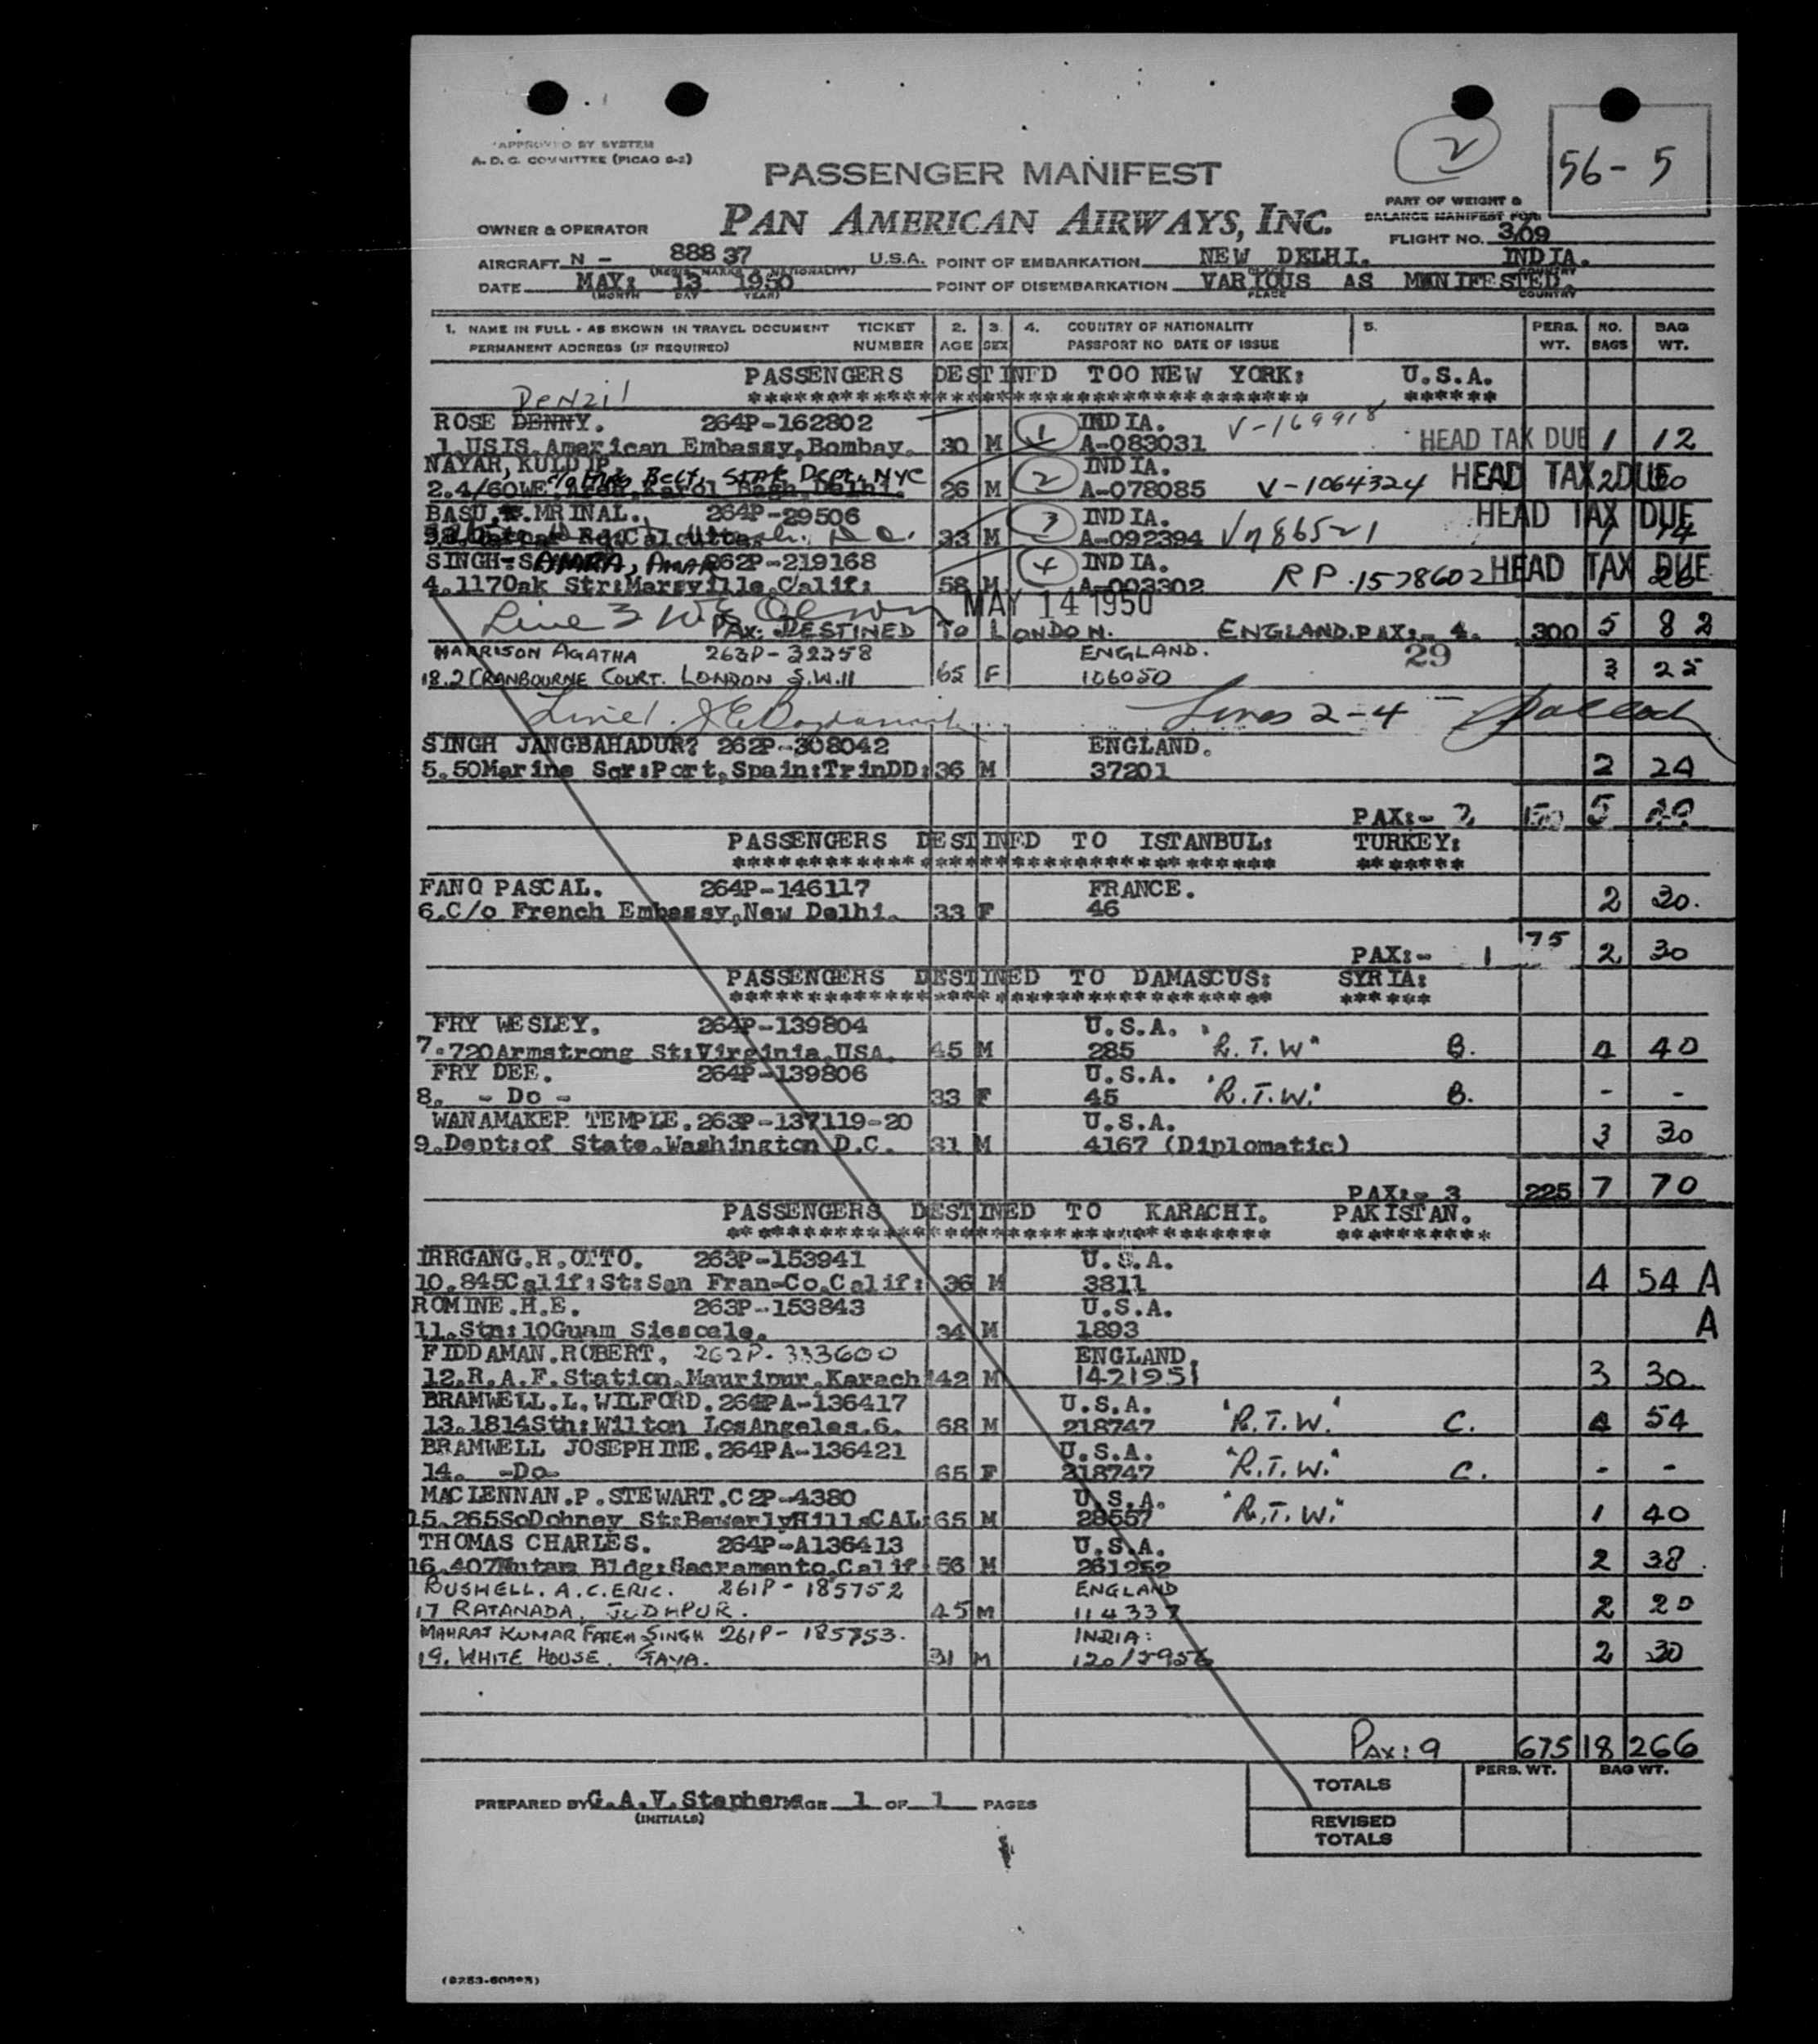 APPROVED BY SYSTEM
A. D. C. COMMITTEE (PICAO 6-2)
2
56-5
PASSENGER MANIFEST
PART OF WEIGHT &
BALANCE MANIFEST FOR
OWNER & OPERATOR PAN AMERICAN AIRWAYS, INC. FLIGHT NO. 3/09
AIRCRAFT N - 88837 U.S.A. POINT OF EMBARKATION NEW DELHI. INDIA.
DATE MAY: 13 1950 POINT OF DISEMBARKATION VARIOUS AS MANIFESTED.
(MONTH DAY YEAR) PLACE COUNTRY
1. NAME IN FULL - AS SHOWN IN TRAVEL DOCUMENT TICKET 2. 3. 4. COUNTRY OF NATIONALITY 5. PERS. NO. BAG
PERMANENT ADDRESS (IF REQUIRED) NUMBER AGE SEX PASSPORT NO DATE OF ISSUE WT. BAGS WT.
PASSENGERS DESTINED TOO NEW YORK: U.S.A.
Denzil
ROSE DENNY. 264P-162802 1 INDIA. V-169918
1.USIS.American Embassy,Bombay. 30 M A-083031 HEAD TAX DUE 1 12
NAYAR, KULDIP State Dept. NYC INDIA.
2.4/60WE.Area,Karol Bagh,Delhi. 26 M 2 A-078085 V-1064324 HEAD TAX DUE
BASU. MRINAL. 264P-29506 INDIA. HEAD TAX DUE
Rd:Calcutta. 33 M 3 A-092394 14
SINGH-S AMRA, AMAR 262P-219168 4 INDIA.
4.1170ak Str:Marsville,Calif: 58 M A-003302 RP.1578602 HEAD TAX DUE
Line 3 MAY 14 1950
PAX: DESTINED TO LONDON. ENGLAND.PAX:- 4. 300 5 82
HARRISON AGATHA 263P-32358 ENGLAND. 29
18.2 CRANBOURNE COURT. LONDON S.W.11 65 F 106050 3 25
Line 1. Lines 2-4
SINGH JANGBAHADUR? 262P-308042 ENGLAND.
5.50Marine Sqr:Port,Spain:TrinDD: 36 M 37201 2 24
PAX:- 2 150 5 49
PASSENGERS DESTINED TO ISTANBUL: TURKEY:
FANO PASCAL. 264P-146117 FRANCE.
6.C/o French Embassy,New Delhi. 33 F 46 2 30.
PAX:- 1 75 2 30
PASSENGERS DESTINED TO DAMASCUS: SYRIA:
FRY WESLEY. 264P-139804 U.S.A.
7.720Armstrong St:Virginia.USA. 45 M 285 "R.T.W" B. 4 40
FRY DEE. 264P-139806 U.S.A.
8. - Do - 33 F 45 "R.T.W." B. - -
WANAMAKER TEMPLE.263P-137119-20 U.S.A.
9.Dept:of State.Washington D.C. 31 M 4167 (Diplomatic) 3 30
PAX:- 3 225 7 70
PASSENGERS DESTINED TO KARACHI. PAKISTAN.
IRRGANG.R.OTTO. 263P-153941 U.S.A.
10.845Calif:St:San Fran-Co.Calif: 36 M 3811 4 54 A
ROMINE.H.E. 263P-153843 U.S.A. A
11.Stn:10Guam Siescale. 34 M 1893
FIDDAMAN.ROBERT. 262P-333600 ENGLAND.
12.R.A.F.Station.Mauripur.Karach 42 M 1421951 3 30
BRAMWELL.L.WILFORD.264PA-136417 U.S.A.
13.1814Sth:Wilton LosAngeles.6. 68 M 218747 "R.T.W." C. 4 54
BRAMWELL JOSEPHINE.264PA-136421 U.S.A.
14. -Do- 65 F 218747 "R.T.W." C. - -
MACLENNAN.P.STEWART.C2P-4380 U.S.A.
15.265SoDohney St:BewerlyHillsCAL: 65 M 28557 "R.T.W." 1 40
THOMAS CHARLES. 264P-A136413 U.S.A.
16.407 Bldg:Sacramento,Calif: 56 M 261252 2 38
BUSHELL. A.C.ERIC. 261P-185752 ENGLAND
17 RATANADA, JODHPUR. 45 M 114337 2 20
MAHRAJ KUMAR FATEH SINGH 261P-185753. INDIA:
19. WHITE HOUSE. GAYA. 31 M 120/5956 2 30
PAX: 9 675 18 266
TOTALS PERS. WT. BAG WT.
PREPARED BY G.A.V.Stephens PAGE 1 OF 1 PAGES
(INITIALS)
REVISED
TOTALS